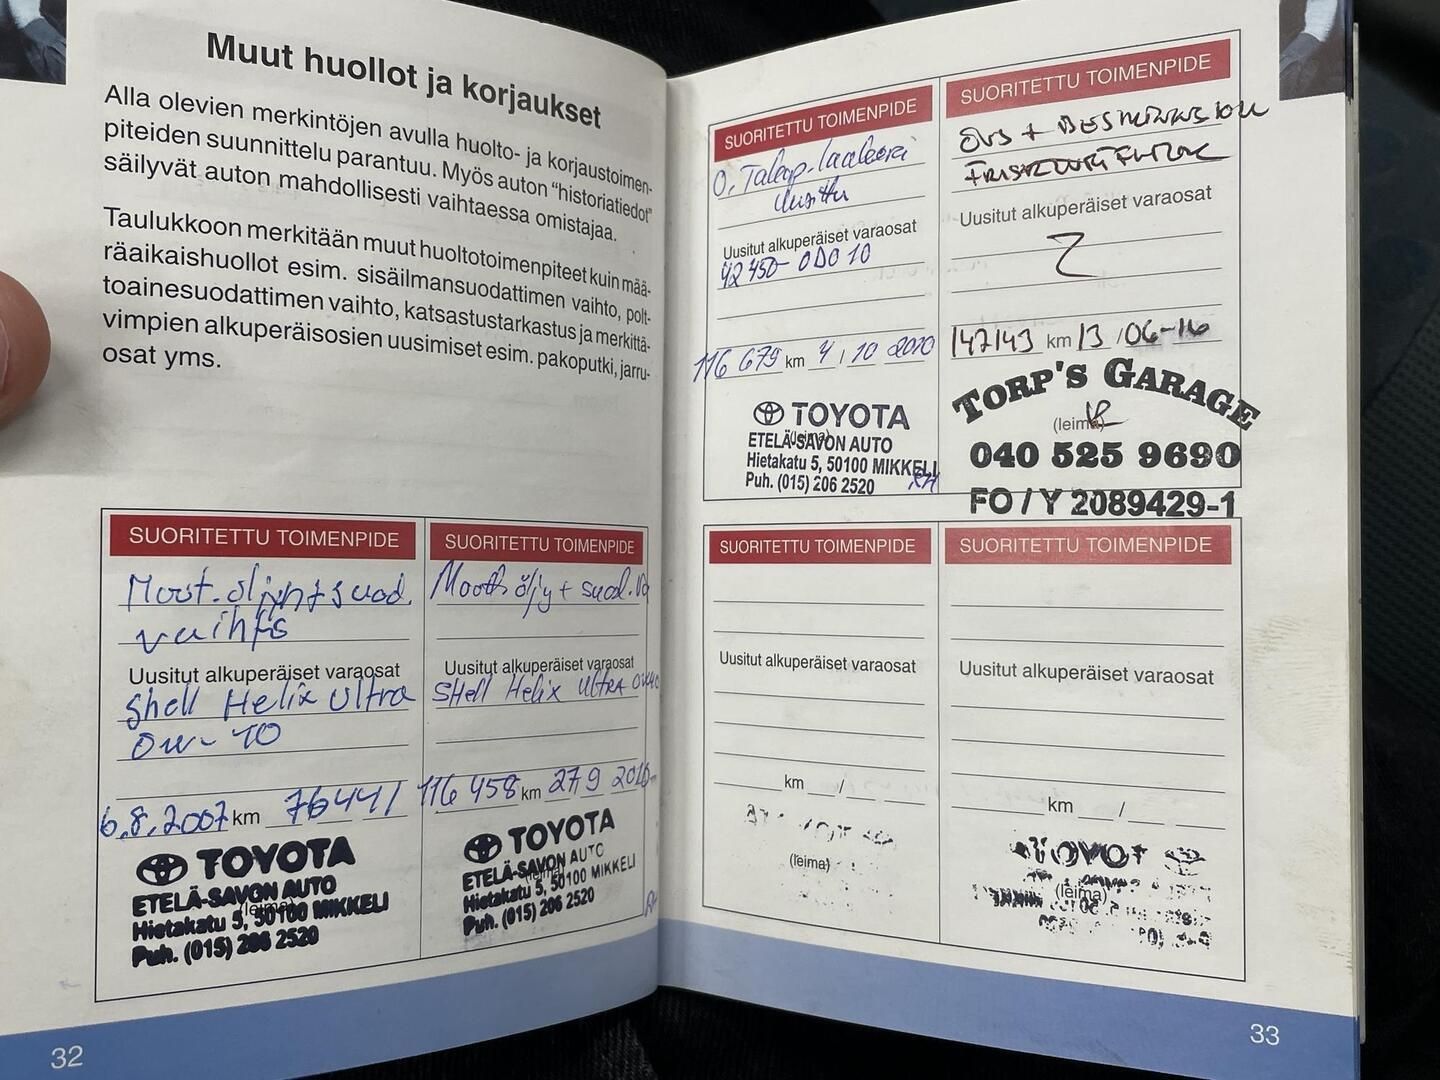 Muut huollot ja korjaukset
Alla olevien merkintöjen avulla huolto- ja korjaustoimen-
piteiden suunnittelu parantuu. Myös auton "historiatiedot"
säilyvät auton mahdollisesti vaihtaessa omistajaa.
Taulukkoon merkitään muut huoltotoimenpiteet kuin mää-
räaikaishuollot esim. sisäilmansuodattimen vaihto, polt-
toainesuodattimen vaihto, katsastustarkastus ja merkittä-
vimpien alkuperäisosien uusimiset esim. pakoputki, jarru-
osat yms.
SUORITETTU TOIMENPIDE
Moot.öljyn+suod.
vaihto
Uusitut alkuperäiset varaosat
Shell Helix Ultra
0w-40
6.8.2007 km 76441
TOYOTA
ETELÄ-SAVON AUTO
(leima)
Hietakatu 5, 50100 MIKKELI
Puh. (015) 206 2520
32
SUORITETTU TOIMENPIDE
Mooth öljy + suod.
Uusitut alkuperäiset varaosat
SHell Helix Ultra 0w40
116 458 km 27 9 2010
TOYOTA
ETELÄ-SAVON AUTO
(leima)
Hietakatu 5, 50100 MIKKELI
Puh. (015) 206 2520
SUORITETTU TOIMENPIDE
O. Takap. laakeri
Uusittu
Uusitut alkuperäiset varaosat
42450-0D010
116 679 km 4 / 10 2010
TOYOTA
(leima)
ETELÄ-SAVON AUTO
Hietakatu 5, 50100 MIKKELI
Puh. (015) 206 2520
SUORITETTU TOIMENPIDE
Uusitut alkuperäiset varaosat
147143 km 13 / 06-16
TORP'S GARAGE
(leima)
040 525 9690
FO / Y 2089429-1
SUORITETTU TOIMENPIDE
Uusitut alkuperäiset varaosat
km /
(leima)
SUORITETTU TOIMENPIDE
Uusitut alkuperäiset varaosat
km /
TOYOT
(leima)
33